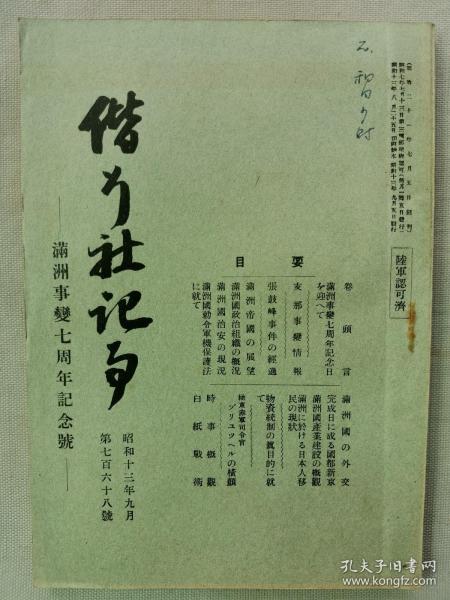 (明治二十一年七月五日創刊)
陸軍認可濟
要目
卷頭言
滿洲事變七周年記念日
を迎へて
支那事變情報
張鼓峰事件の經過
滿洲帝國の展望
滿洲國政治組織の概況
滿洲國治安の現況
滿洲國勳令軍機保護法
に就て
滿洲國の外交
完成日に成る國都新京
滿洲國產業建設の概觀
滿洲に於ける日本人移
民の現狀
物資統制の眞目的に就
て
極東赤軍司令官
ブリユツヘルの橫顏
時事概觀
白紙戰術
偕行社記事
滿洲事變七周年記念號
昭和十三年九月
第七百六十八號
孔夫子旧书网
www.kongfz.com